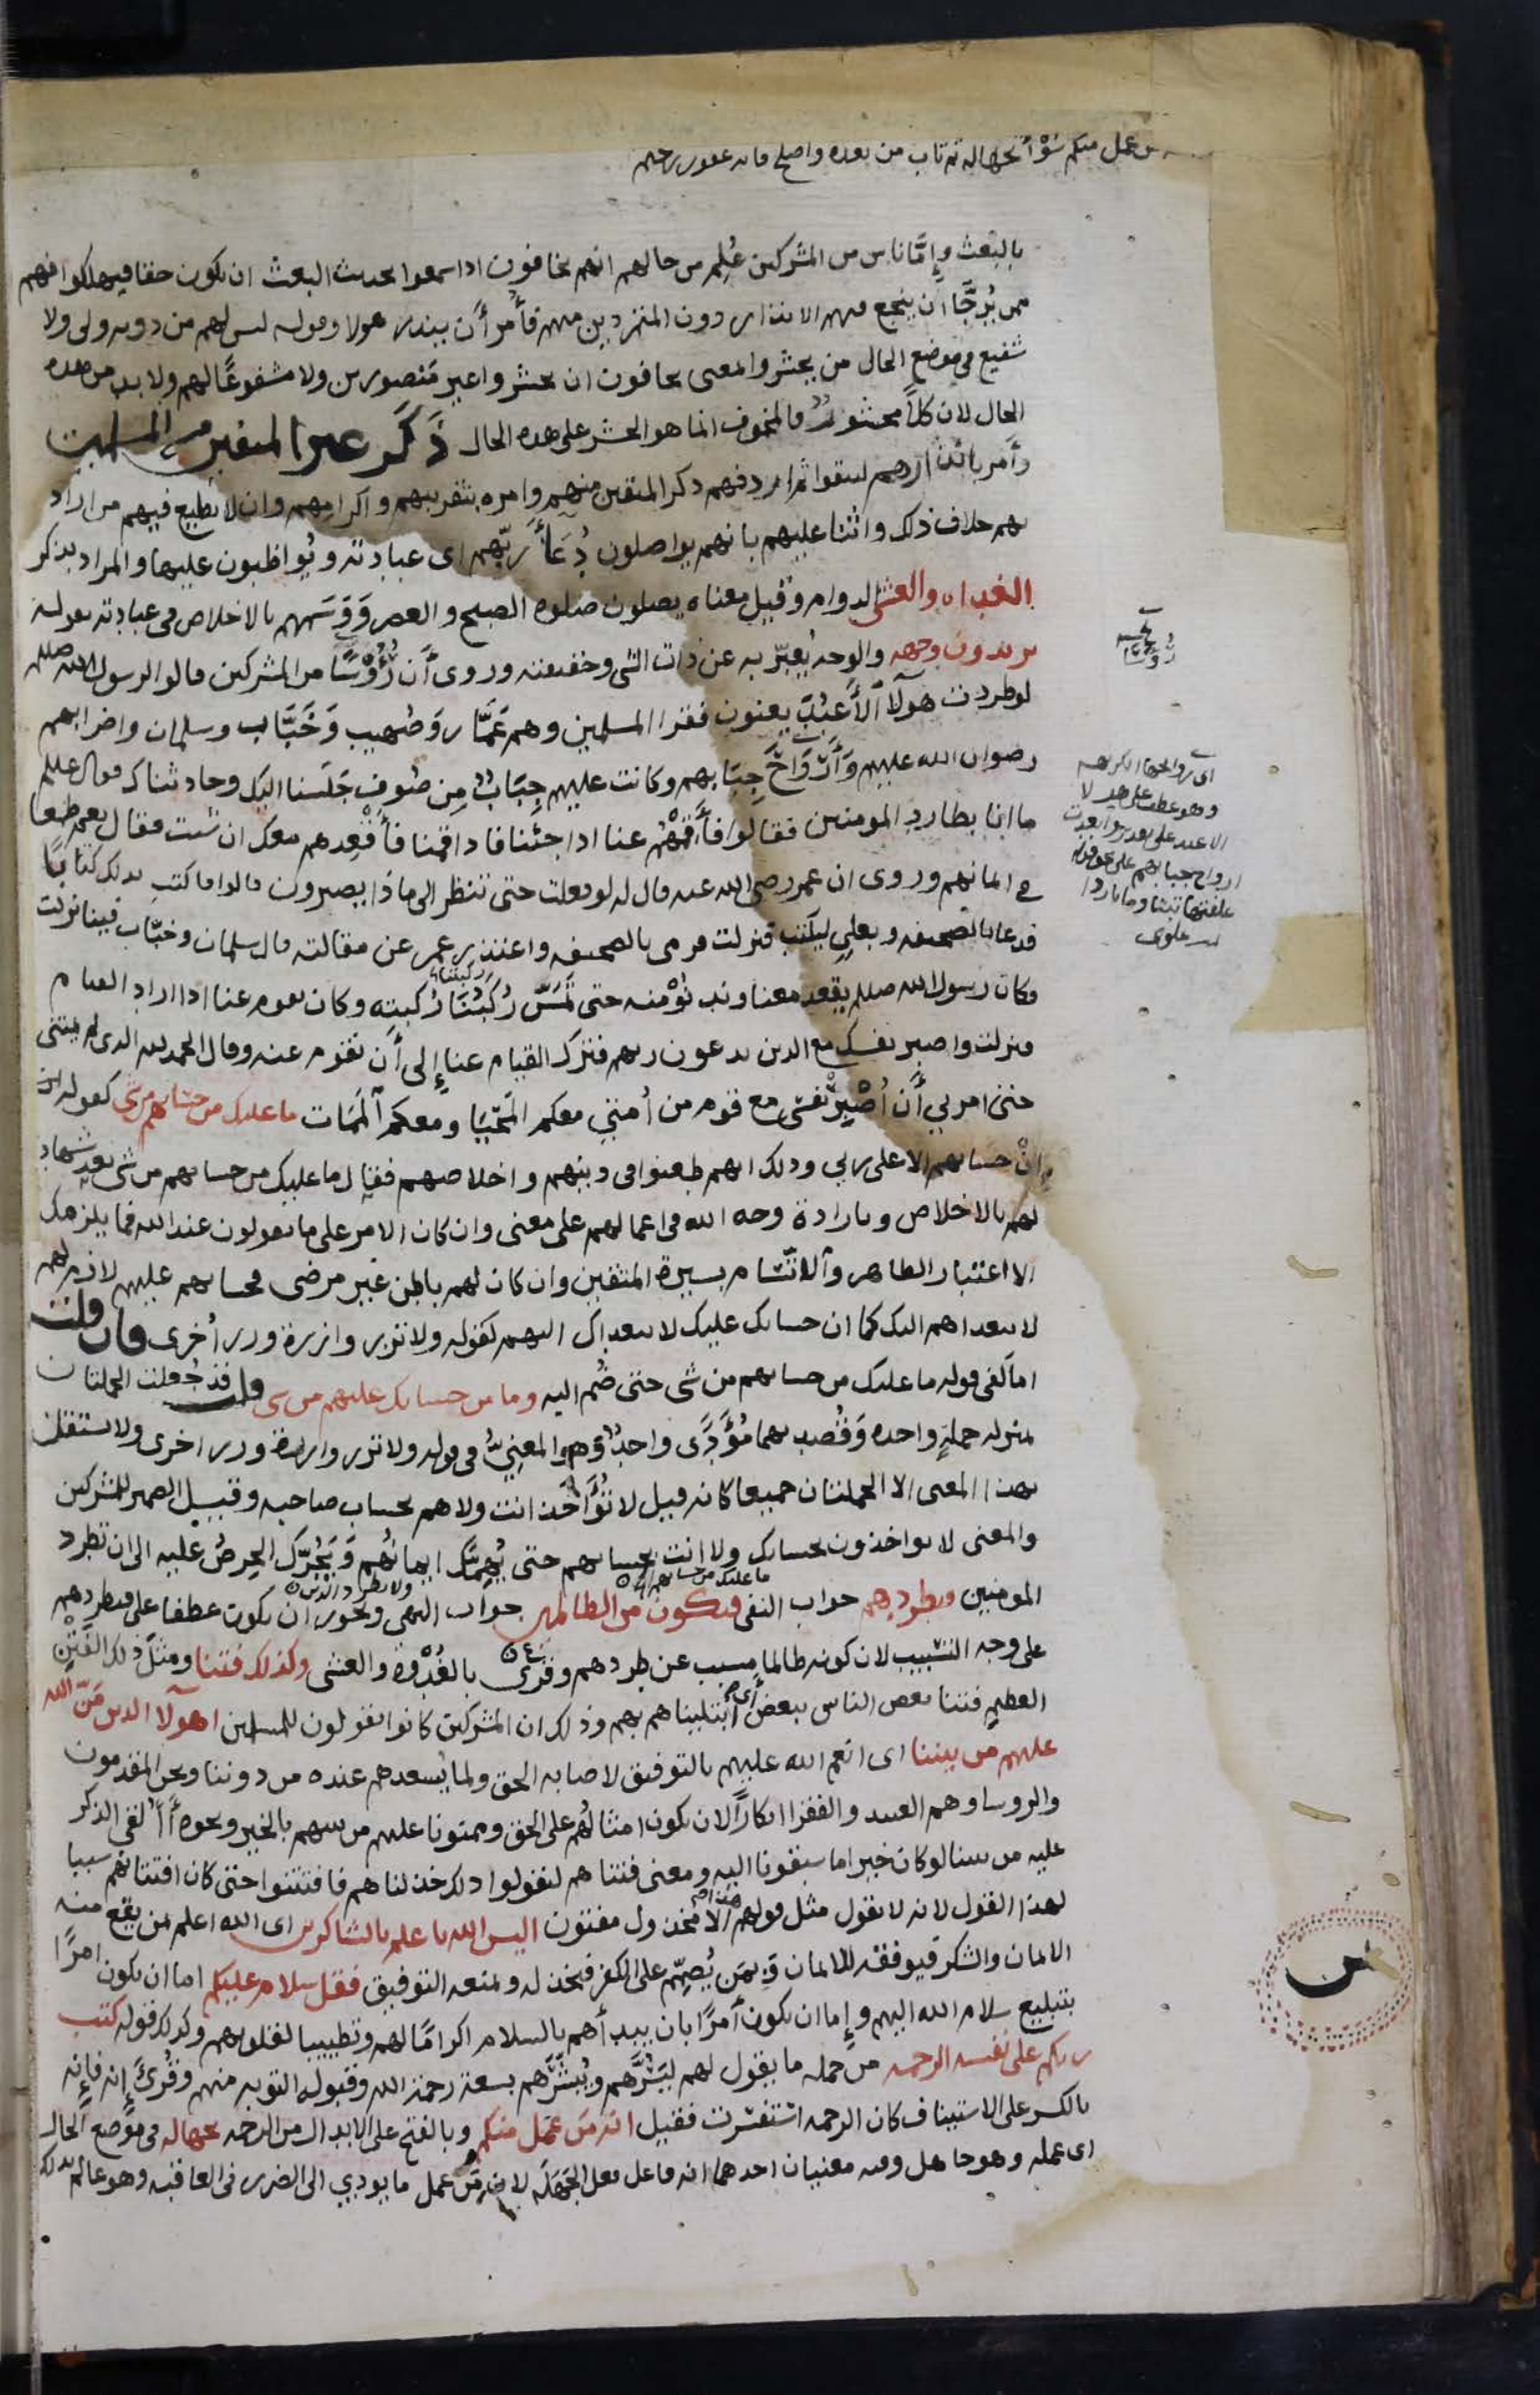 من عمل منكم سوءا بجهاله ثم تاب من بعده واصلح فانه غفور رحيم
بالبعث وإمَّا ناس من المشركين عُلِم من حالهم انهم يخافون اذا سمعوا بحديث البعث ان يكون حقا فيهلكوا فهم
ممن يُرجَّا أن ينجع فيهم الانذار دون المتمردين منهم فأُمر أن ينذر هولا وقوله ليس لهم من دونه ولى ولا
شفيع في موضع الحال من يحشروا والمعنى يخافون ان يحشروا غير مَنصورين ولا مشفوعًا لهم ولا بد من هذه
الحال لان كلًا محشورٌ فالمخوف انما هو الحشر على هذه الحال ذَكَر غير المتقين من المسلمين
وأَمر بانذارهم ليتقوا ثم اردفهم ذكر المتقين منهم وامره بتقريبهم واكرامهم وان لا يطيع فيهم من اراد
بهم خلاف ذلك واثنا عليهم بانهم يواصلون دُعَأَ ربّهم اى عبادته ويُواظبون عليها والمراد بذكر
الغداه والعشى الدوام وقيل معناه يصلون صلوه الصبح والعصر وَوَسَمَهم بالاخلاص فى عبادته بقوله
يريدون وجهه والوجه يُعبّر به عن ذات الشى وحقيقته وروى أَن رُؤُوسًا من المشركين قالوا لرسول الله صلعم
لو طردت هولآ الأَعبُدَ يعنون فقرا المسلمين وهم عَمَّار وَصُهيب وَخَبَّاب وسلمان واضرابهم
رضوان الله عليهم وَأَرْوَاحَ جِبَابهم وكانت عليهم جِبَابٌ مِن صُوفٍ جَلَسنا اليك وحادثناك فقال عليلم
ما انا بطارد المومنين فقالوا فأَقِمْهُم عنا اذا جئنا فاذا قمنا فأَقْعِدهم معك ان شئت فقال نعم طمعا
في ايمانهم وروى ان عمر رضى الله عنه قال له لو فعلت حتى ننظر الى ماذا يصيرون قالوا فاكتب بذلك كتابًا
فدعا بالصحيفه وبعلىٍ ليكتب فنزلت فرمى بالصحيفه واعتذر عمر عن مقالته قال سلمان وخبّاب فينا نزلت
فكان رسول الله صللم يقعد معنا وندنُوْ منه حتى تَمَسّ رُكَبُنَا رُكبته وكان يقوم عنا اذا اراد القيام
فنزلت واصبر نفسك مع الذين يدعون ربهم فترك القيام عنا إِلى أَن نقوم عنه وقال الحمد لله الذى لم يمتنى
حتى امرني أَن اُصْبِرَ نَفسى مع قوم من أُمتي معكم المَحْيَا ومعكم ٱلمَمَات ما عليك من حسابهم من شى كقوله
ان حسابهم الا على ربي وذلك انهم طعنوا فى دينهم واخلاصهم فقال ما عليك من حسابهم من شى بعد شهادته
لهم بالاخلاص وبارادة وجه الله فى اعمالهم على معنى وان كان الامر على ما يقولون عند الله فما يلزمك
الا اعتبار الظاهر وٱلاتّسام بسيرة المتقين وان كان لهم باطن غير مرضى فحسابهم عليهم لازم لهم
لا يتعداهم اليك كما ان حسابك عليك لا يتعداك اليهم كقوله ولا تزر وازرة وزر أُخرى فان قلت
اما كفى قوله ما عليك من حسابهم من شى حتى ضُم اليه وما من حسابك عليهم من شى قلت قد جُعلت الجملتان
بمنزله جملةٍ واحده وَقُصد بهما مُؤَدًّى واحدٌ وهو المعنِيُّ فى قوله ولا تزر وازرة وزر اخرى ولا يستقل
بهذا المعنى الا الجملتان جميعا كانه قيل لا تُؤَاخَذ انت ولا هم بحساب صاحبه وقيل الضمير للمشركين
والمعنى لا يواخذون بحسابك ولا انت بحسابهم حتى يُهِمَّك ايمانُهُم وَيَجُرَّك الحِرصُ عليه الى ان تطرد
ما عليك من حسابهم
ولا تطرد الذين
المومنين فتطردهم جواب النفى فتكون من الظالمين جواب النهى ويجوز ان يكون عطفا على فتطردهم
على وجه التسبيب لان كونه ظالما مسبب عن طردهم وقُرى بالغُدْوة والعشى وكذلك فتنا ومثلَ ذلك الفَتْنِ
العظيم فتنا بعض الناس ببعض أَى ابتليناهم بهم وذلك ان المشركين كانوا يقولون للمسلمين اهولآ الذين مَنّ الله
عليهم من بيننا اى انعم الله عليهم بالتوفيق لاصابه الحق ولما يُسعدهم عنده من دوننا ونحن المقدمون
والروسا وهم العبيد والفقرا انكارًا لان يكون امثالُهُم على الحق وممنونا عليهم من بينهم بالخير ونحوه أَأُلقى الذكر
عليه من بيننا لو كان خيرا ما سبقونا اليه ومعنى فتناهم ليقولوا ذلك خذلناهم فافتتنوا حتى كان افتتانهم سببا
لهذا القول لانه لا يقول مثل قولهم هذا الا مخذول مفتون اليس الله باعلم بالشاكرين اى الله اعلم بمن يقع منه
الايمان والشكر فيوفقه للايمان وَبمَن يُصَمِّم على الكفر فيخذله ويمنعه التوفيق فقل سلام عليكم اما ان يكون امرًا
بتبليغ سلام الله اليهم وإِما ان يكون أَمرًا بان يبدأَهم بالسلام اكرامًا لهم وتطييبا لقلوبهم وكذلك قوله كتب
ربكم على نفسه الرحمه من جمله ما يقول لهم ليَسُرَّهم ويُبشّرَهم بسعة رحمة الله وقبوله التوبه منهم وقُرئَ إِنه فإِنه
بالكسر على الاستيناف كان الرحمه استفسرت فقيل انه من عمل منكم وبالفتح على الابدال من الرحمه بجهاله فى موضع الحال
اى عمله وهو جاهل وفيه معنيان احدهما انه فاعل فعل الجَهَلَه لان من عمل ما يودي الى الضرر فى العاقبه وهو عالم بذلك
اى روايحها الكريهه
وهو عطف على هولا